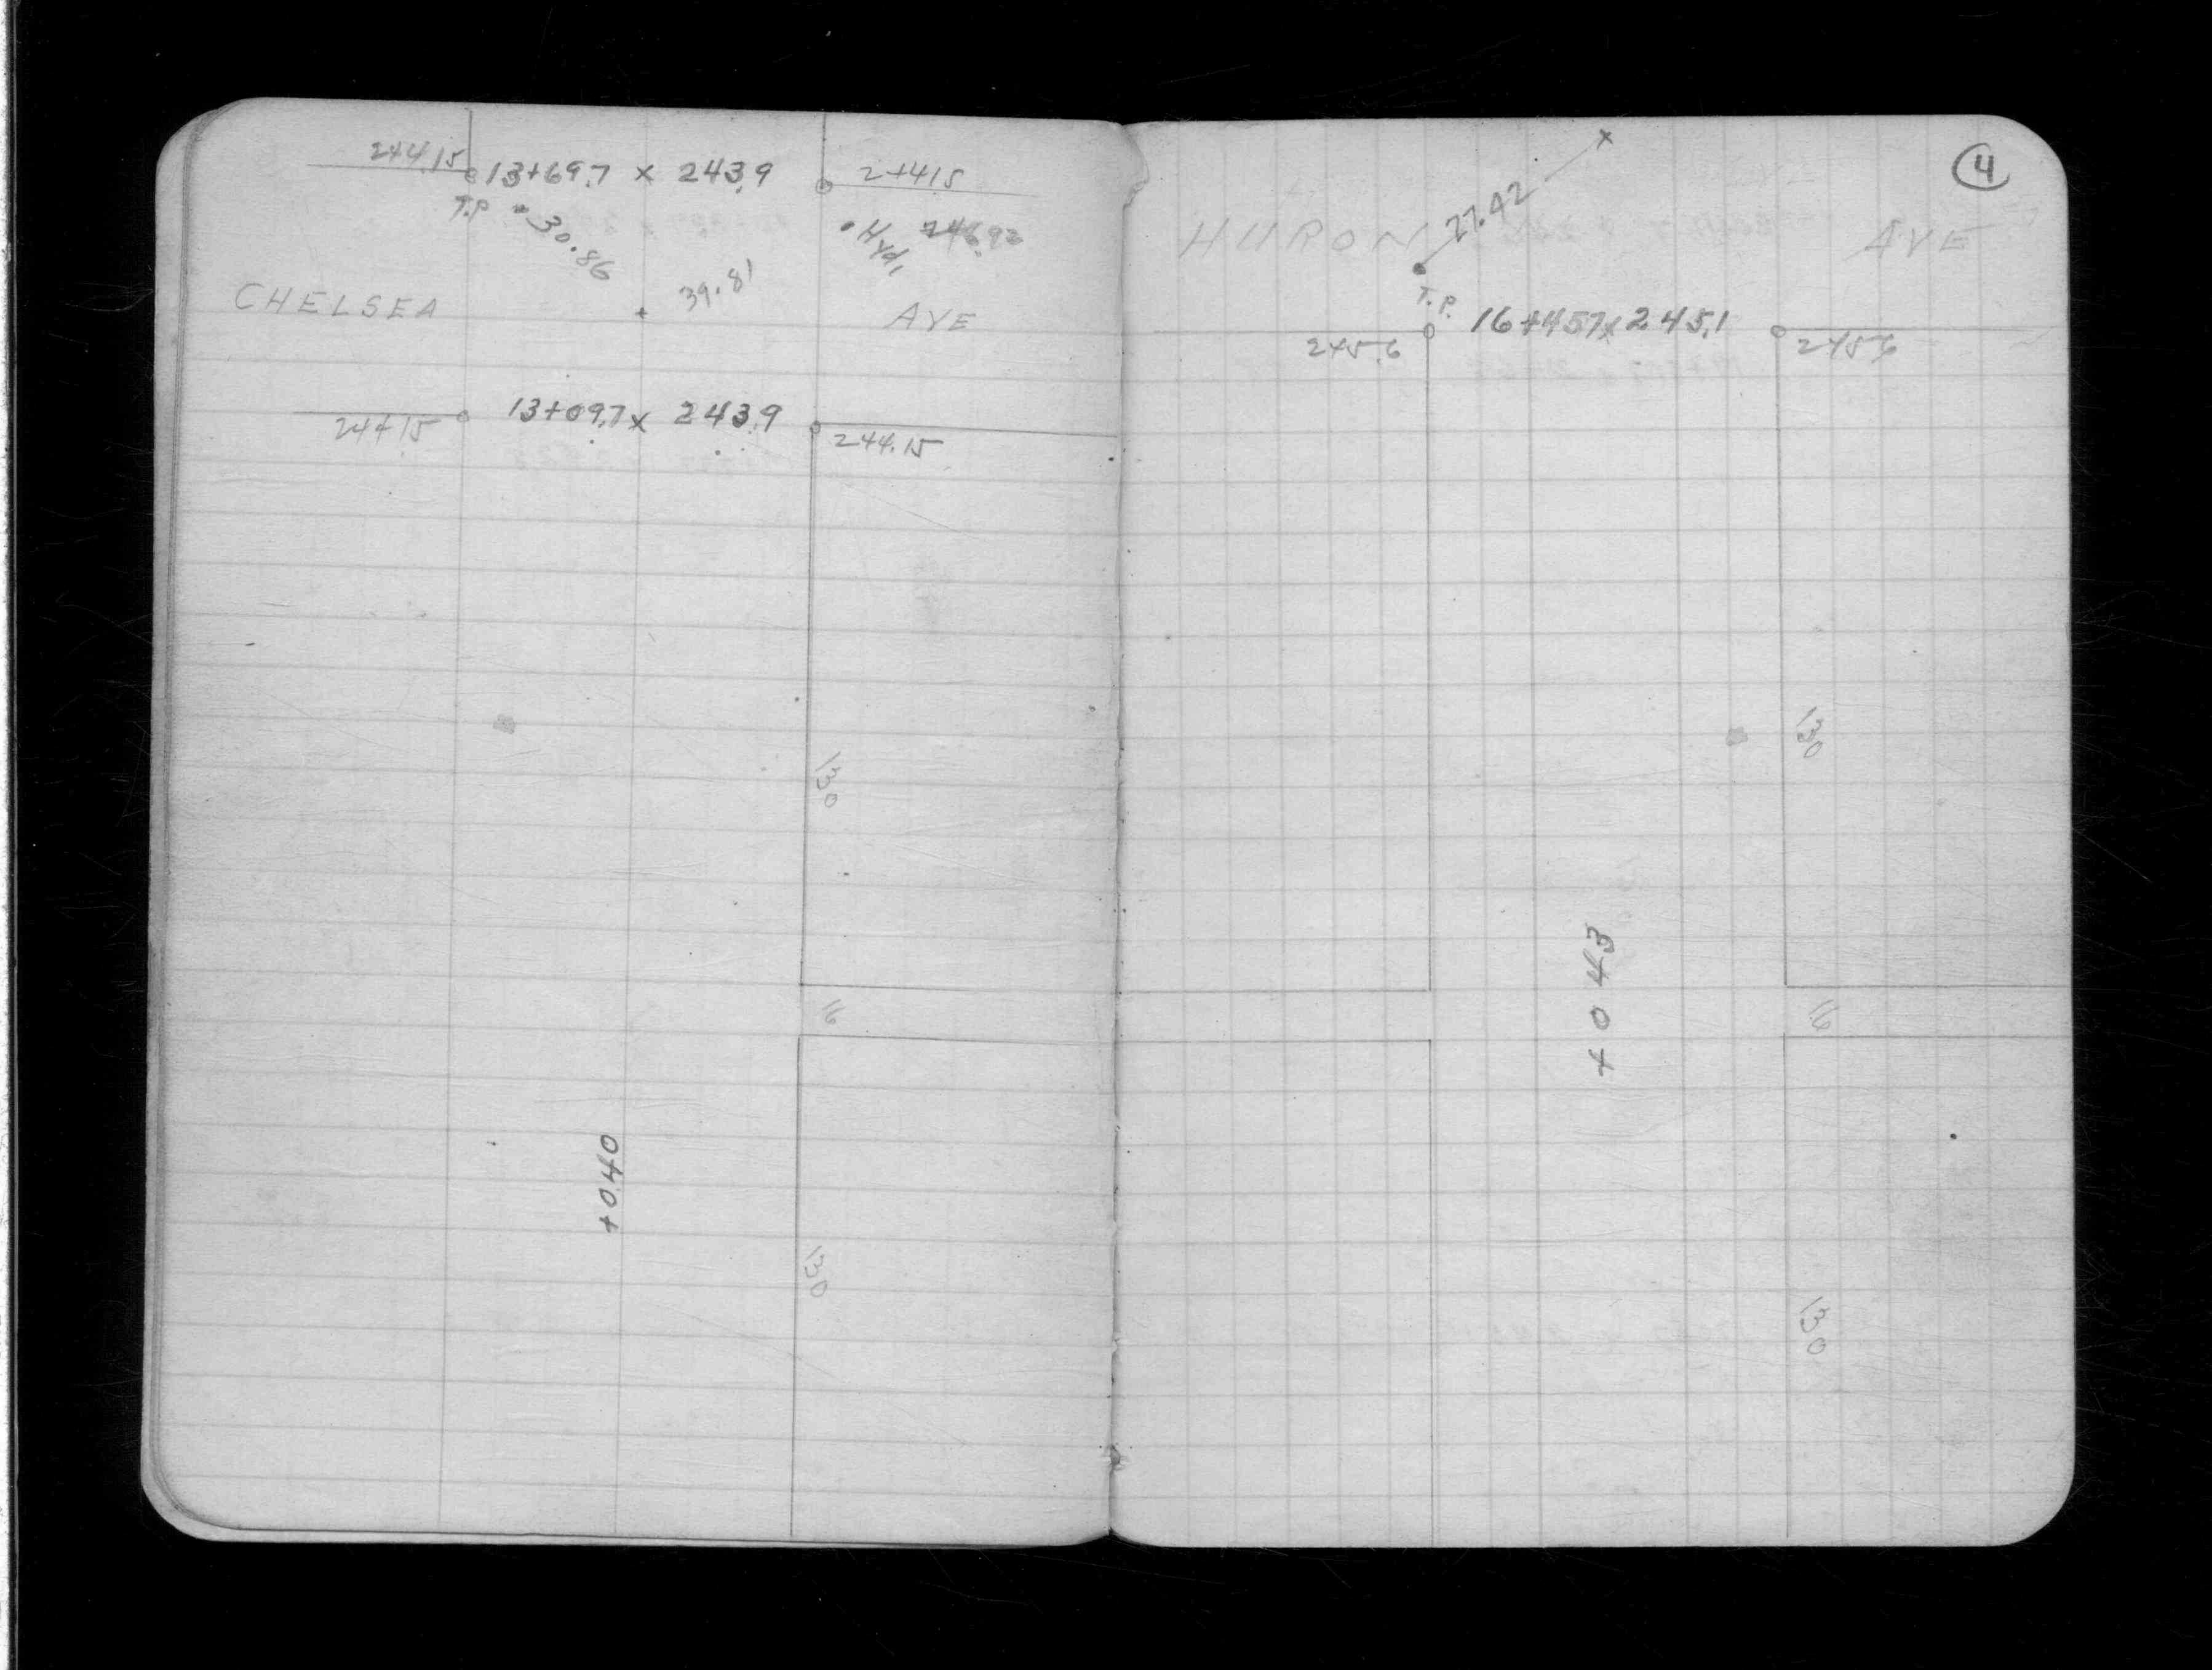 244.15
13+69.7 x 243.9
2+415
T.P
30.86
Hyd.
39.81
CHELSEA AVE
13+09.7 x 243.9
244.15
244.15
130
16
+040
130
4
27.42
HURON AVE
T.P.
16+45.7 x 245.1
245.6
245.6
130
+043
16
130